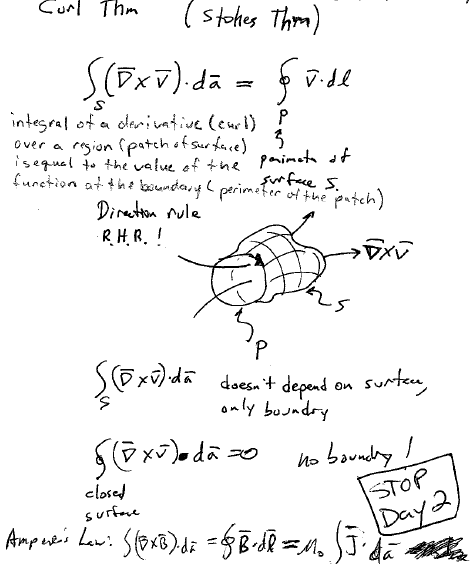 Curl Thm (Stokes Thm)
∫_S (∇̄ x v̄)·dā = ∮_P v̄·dl
integral of a derivative (curl)
over a region (patch of surface)
is equal to the value of the
function at the boundary (perimeter of the patch)
perimeter of
surface S.
Direction rule
R.H.R. !
∇̄ x v̄
S
P
∫_S (∇̄ x v̄)·dā doesn't depend on surface,
only boundry
∮ (∇̄ x v̄)·dā = 0 no boundry !
closed
surface
STOP
Day 2
Ampere's Law: ∫(∇̄ x B̄)·dā = ∮ B̄·dl̄ = μ₀ ∫ J̄·dā